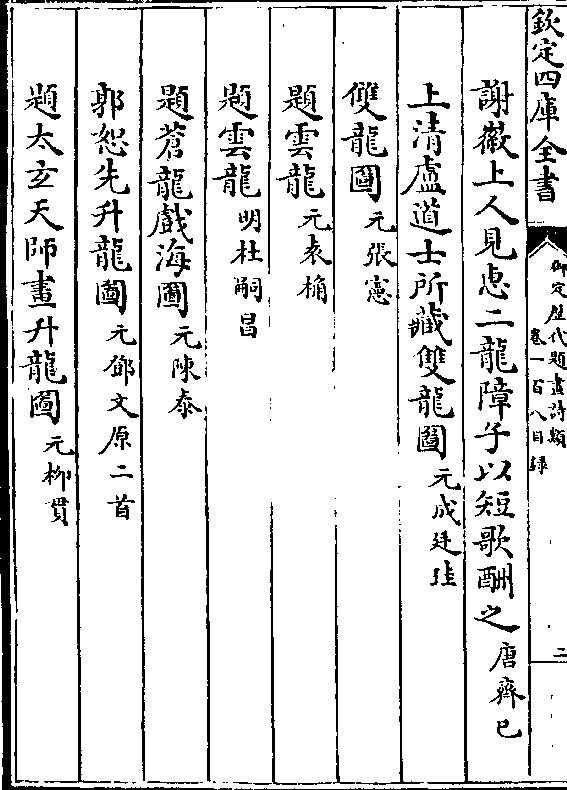 欽定四庫全書
御定歷代題畫詩類
卷一百八目錄
二
謝徽上人見惠二龍障子以短歌酬之 唐齊已
上清盧道士所藏雙龍圖 元成廷珪
雙龍圖 元張憲
題雲龍 元袁桷
題雲龍 明杜嗣昌
題蒼龍戲海圖 元陳泰
郭恕先升龍圖 元鄧文原二首
題太玄天師畫升龍圖 元柳貫